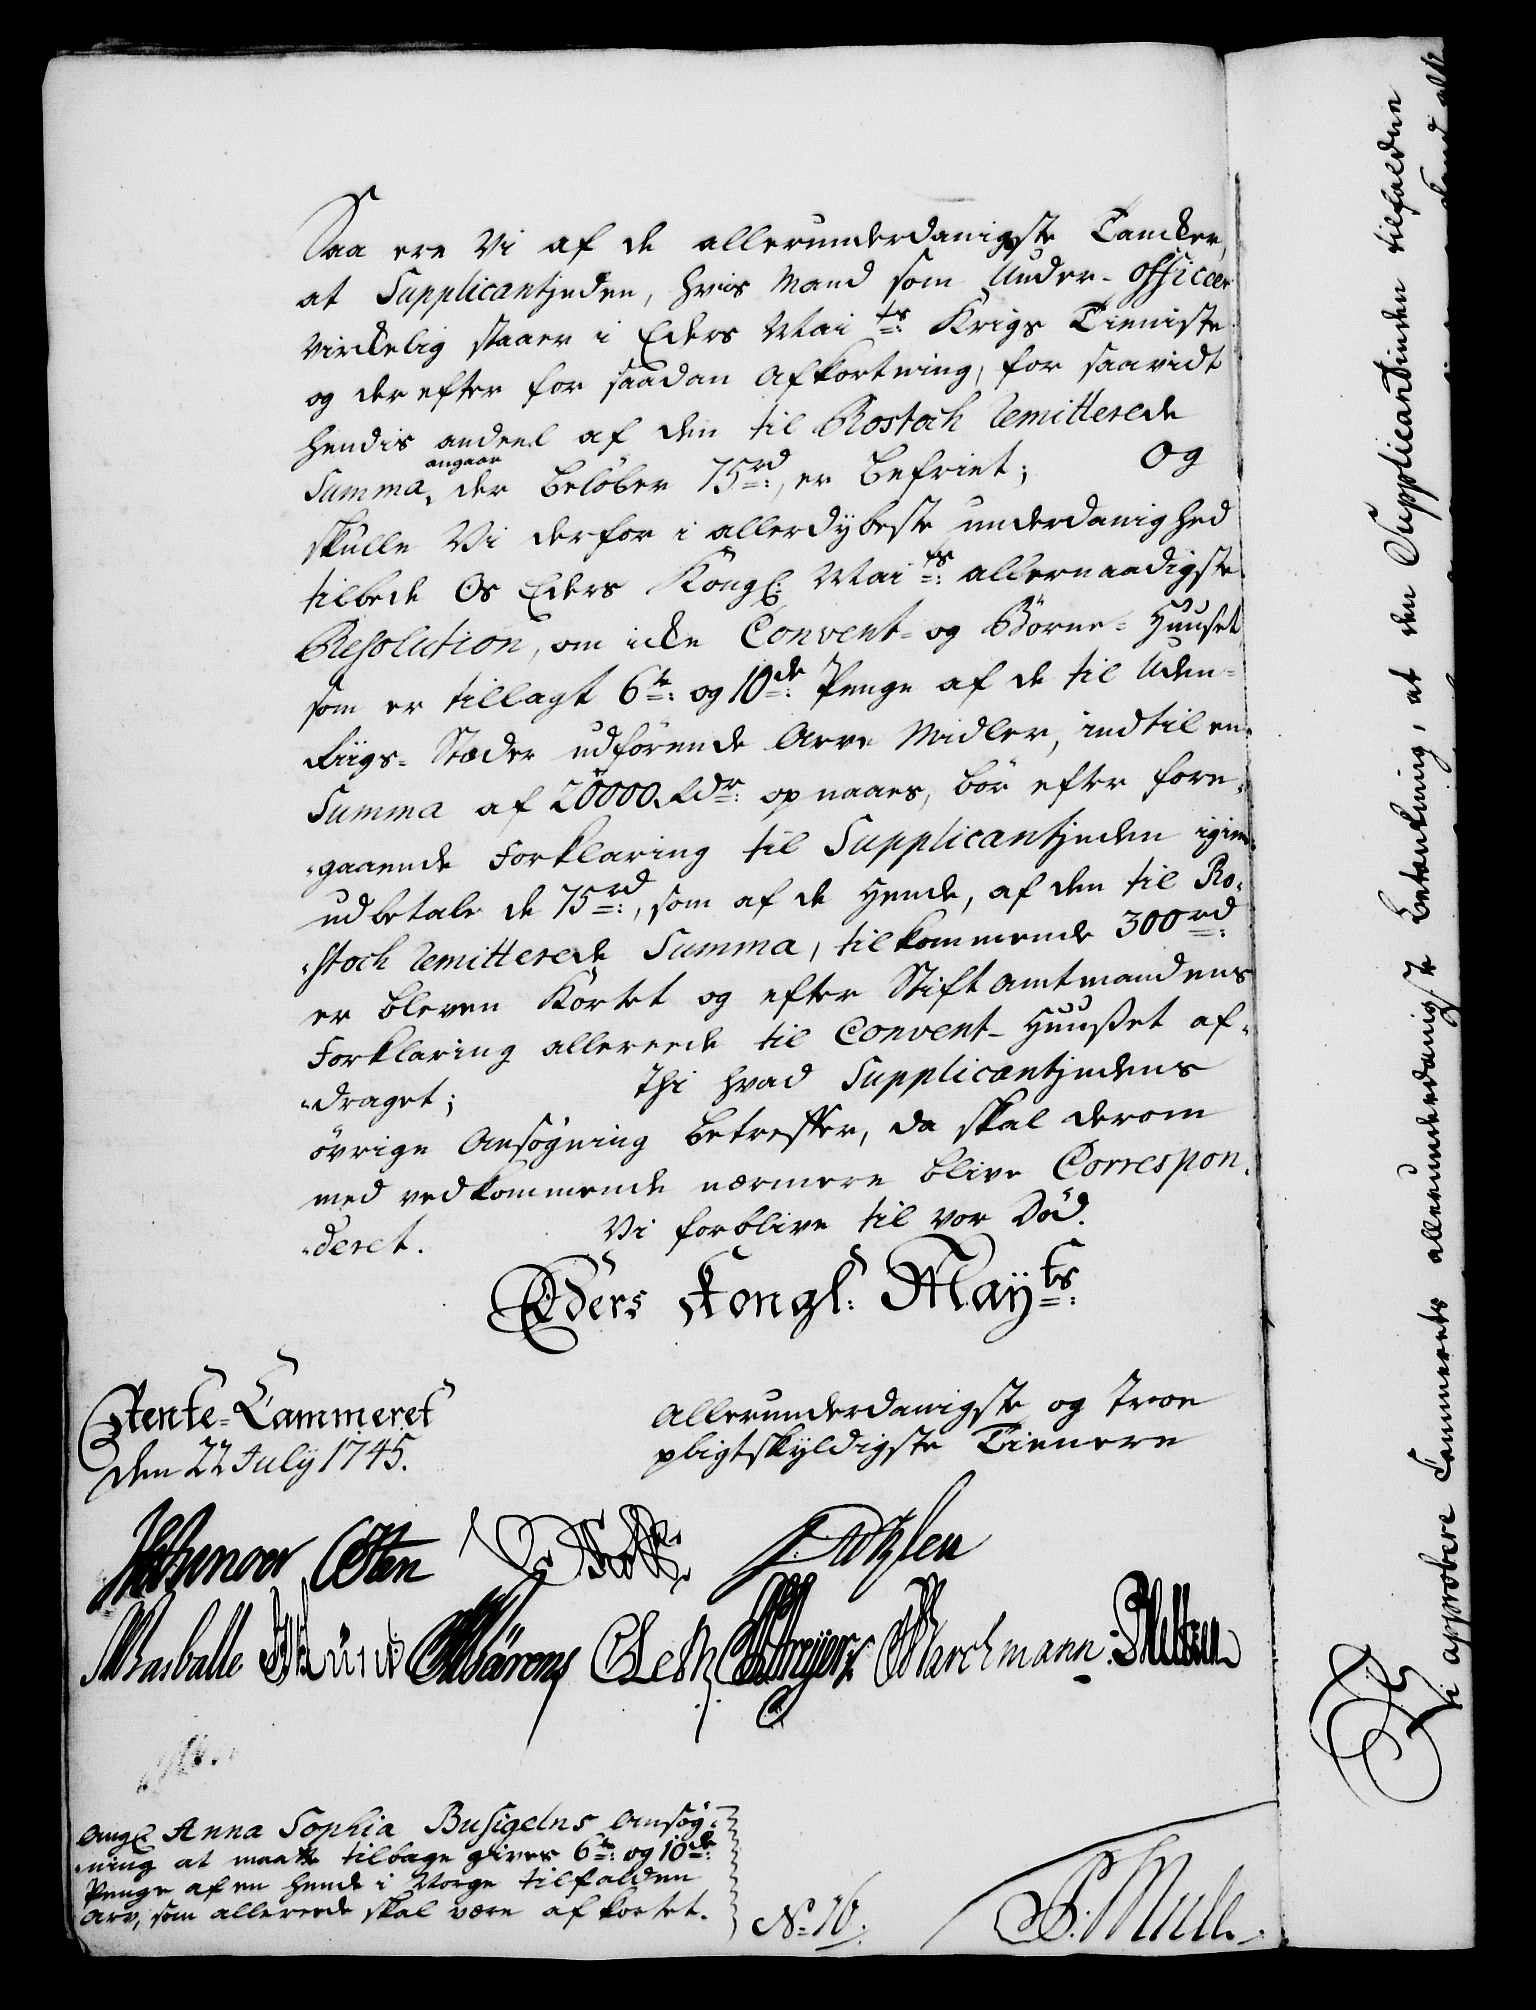 Saa ere Vi af de allerunderdanigste Tancker,
at Supplicantinden, hvis Mand som Under-Officeer
virckelig staaer i Eders Mai ts: Krigs Tieniste
og derefter for saadan Afkortning, for saavidt
hendis andeel af den til Rostoch remitterede
Summa, angaar der beløber 75 rd:, er befriet; Og
skulle Vi derfor i allerdÿbeste underdanighed
tilbede Os Eders Kongl: Mai ts: allernaadigste
Resolution, om icke Convent- og Börne-Huuset
som er tillagt 6te: og 10de: Penge af de til Uden-
Riigs-Stæder udförende Arve Midler, indtil en
Summa af 20000 Rdr: opnaaes, bör efter fore-
-gaaende Forklaring til Supplicantinden igien
udbetale de 75 rd:, som af de Hende, af den til Ro-
-stoch remitterede Summa, tilkommende 300 rd:
er bleven Kortet og efter Stiftamtmandens
Forklaring allereede til Convent-Huuset af-
-draget; Thi hvad Supplicantindens
övrige Ansögning betreffer, da skal derom
med vedkommende nærmere blive Correspon-
-deret. Vi forblive til vor Död.
Eders Kongl: Maÿts:
Rente-Cammeret
den 22 Julÿ 1745.
Allerunderdanigste og Troe
pligtskÿldigste Tienere
Angl Anna Sophia Busigelns Ansög-
-ning at maatte tilbage gives 6te: og 10de:
Penge af en hende i Norge tilfalden
Arv, som allereede skal være afkortet.
No 16.
Vi approbere Cammerets allerunderdanigste Betænkning, at den Supplicantinden tilfaldne